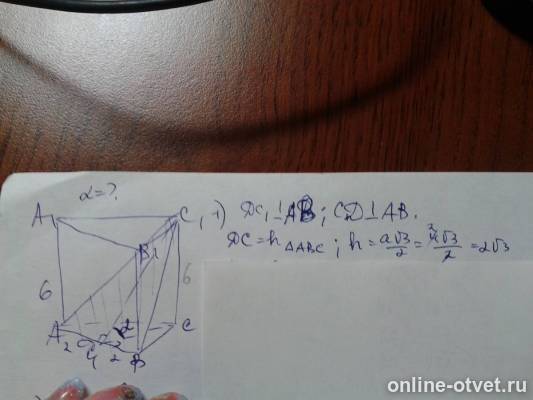 α=?
A₁
C₁
B₁
6
6
A
C
2
2
B
1) DC₁⊥AB; CD⊥AB.
DC = h△ABC; h = a√3/2 = 4√3/2 = 2√3
online-otvet.ru